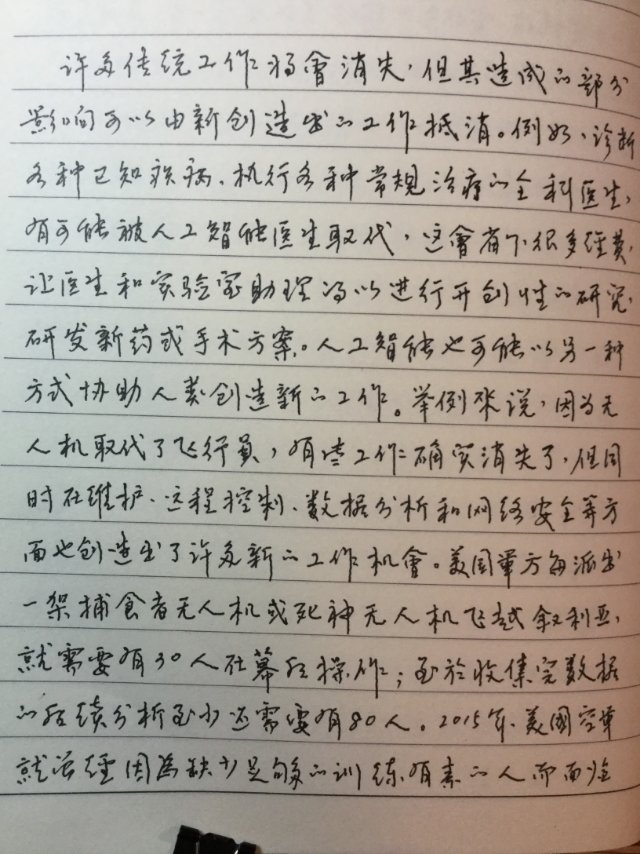 许多传统工作将會消失，但其造成的部分
影响可以由新创造出的工作抵消。例如，诊断
各种已知疾病、执行各种常規治疗的全科医生，
有可能被人工智能医生取代，这會省下很多经費，
让医生和实验室助理得以进行开创性的研究，
研发新药或手术方案。人工智能也可能以另一种
方式协助人类创造新的工作。举例來说，因为无
人机取代了飞行員，有些工作确实消失了，但同
时在维护、远程控制、数据分析和网络安全等方
面也创造出了许多新的工作机會。美国軍方每派出
一架捕食者无人机或死神无人机飞越叙利亚，
就需要有30人在幕后操作；至於收集完数据
的后续分析至少还需要有80人。2015年，美國空軍
就曾經因為缺少足够的训练有素的人而面临